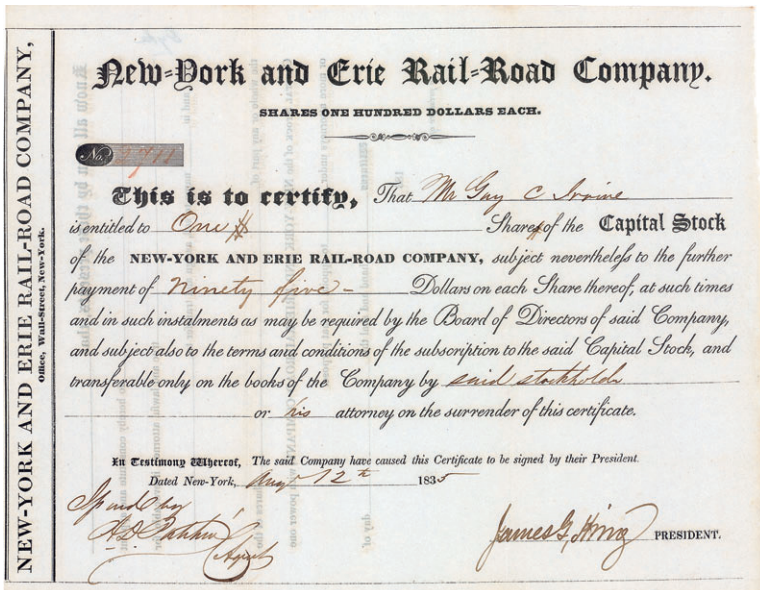 NEW-YORK AND ERIE RAIL-ROAD COMPANY,
Office, Wall-Street, New-York.
New-York and Erie Rail-Road Company.
SHARES ONE HUNDRED DOLLARS EACH.
No.
This is to certify, That Mr Guy C Irvine
is entitled to One Share of the Capital Stock
of the NEW-YORK AND ERIE RAIL-ROAD COMPANY, subject nevertheless to the further
payment of Ninety five - Dollars on each Share thereof, at such times
and in such instalments as may be required by the Board of Directors of said Company,
and subject also to the terms and conditions of the subscription to the said Capital Stock, and
transferable only on the books of the Company by said stockholder
or his attorney on the surrender of this certificate.
In Testimony Whereof, The said Company have caused this Certificate to be signed by their President.
Dated New-York, Aug 12th 1835
James G. King PRESIDENT.